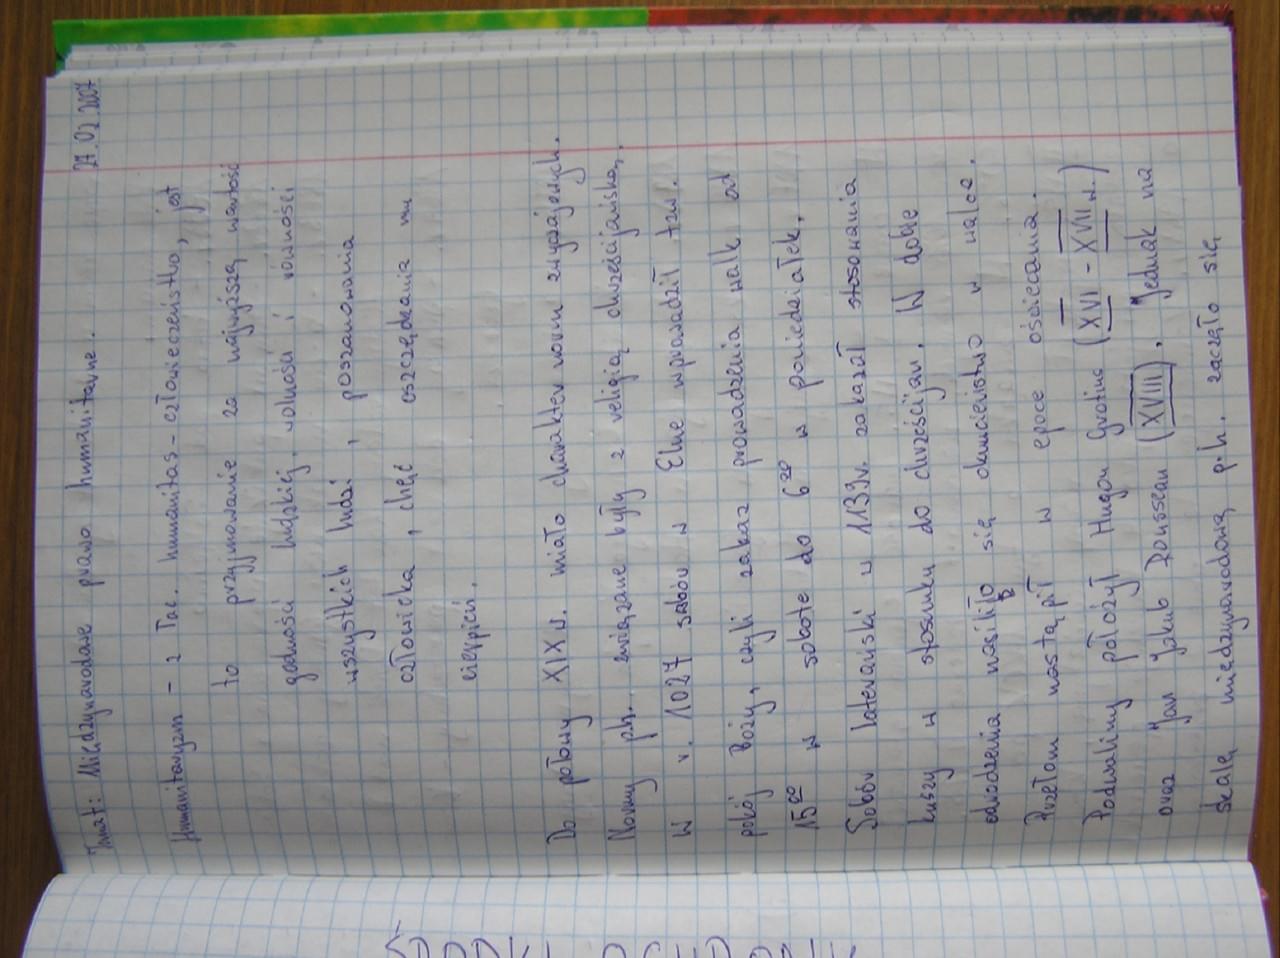 27.02.2007
Temat: Międzynarodowe prawo humanitarne.
Humanitaryzm - z łac. humanitas - człowieczeństwo, jest
to przyjmowanie za najwyższą wartość
godności ludzkiej, wolności i równości
wszystkich ludzi, poszanowania
człowieka, chęć oszczędzania mu
cierpień.
Do połowy XIX w. miało charakter norm zwyczajowych.
Normy ph. związane były z religią chrześcijańską.
W r. 1027 sobór w Elne wprowadził tzw.
pokój Boży, czyli zakaz prowadzenia walk od
15⁰⁰ w sobote do 6⁰⁰ w poniedziałek.
Sobór laterański w 1139r. zakazał stosowania
kuszy w stosunku do chrześcijan. W dobie
odrodzenia nasiliło się okrucieństwo w walce.
Przełom nastąpił w epoce oświecenia.
Podwaliny położył Hugon Grotius (XVI - XVII w.)
oraz Jan Jakub Rousseau (XVIII). Jednak na
skalę międzynarodową p.h. zaczęło się